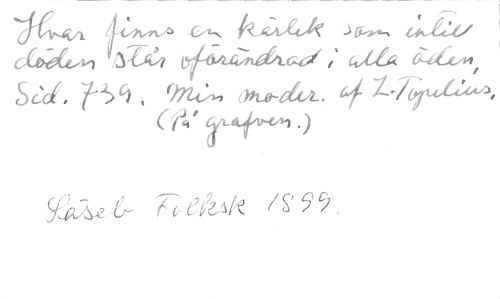 Hvar finns en kärlek som intill
döden står oförändrad i alla öden,
Sid. 739. Min moder. af Z. Topelius.
(På grafven.)
Läseb Folksk 1899.